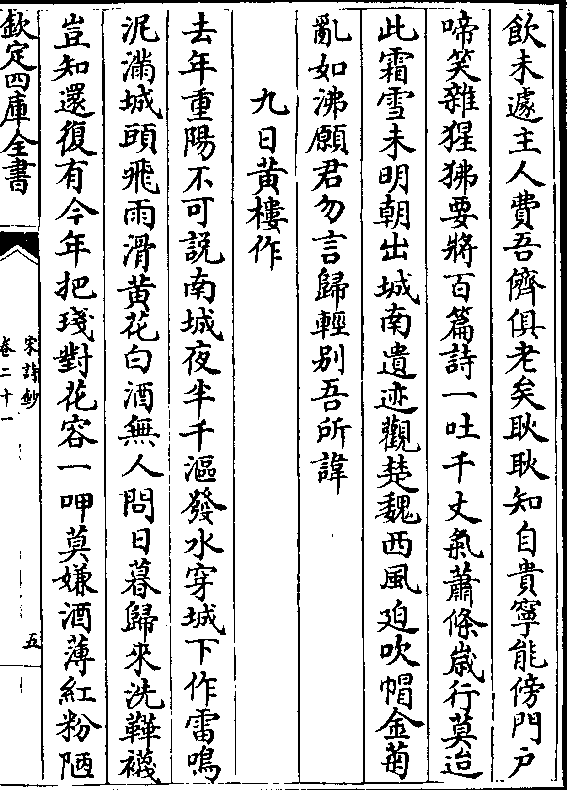 飲未遽主人費吾儕俱老矣耿耿知自貴寧能傍門户
啼笑雜猩狒要將百篇詩一吐千丈氣蕭條歳行莫迨
此霜雪未明朝出城南遺迹觀楚魏西風迫吹帽金菊
亂如沸願君勿言歸輕别吾所諱
九日黄樓作
去年重陽不可説南城夜半千漚發水穿城下作雷鳴
泥滿城頭飛雨滑黄花白酒無人問日暮歸來洗鞾襪
豈知還復有今年把琖對花容一呷莫嫌酒薄紅粉陋
欽定四庫全書
宋詩鈔
卷二十一
五